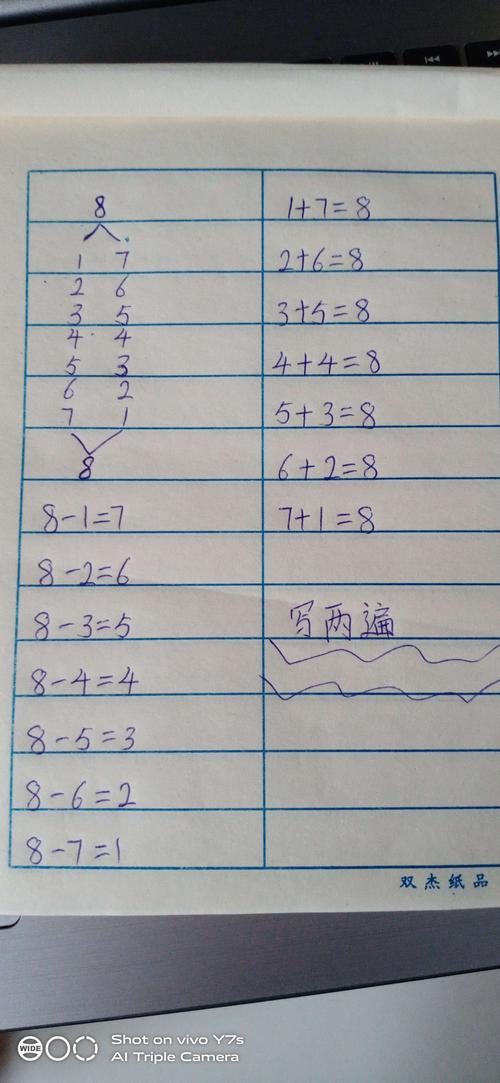 8
1 7
2 6
3 5
4 4
5 3
6 2
7 1
8
8-1=7
8-2=6
8-3=5
8-4=4
8-5=3
8-6=2
8-7=1
1+7=8
2+6=8
3+5=8
4+4=8
5+3=8
6+2=8
7+1=8
写两遍
双杰纸品
WIDE
Shot on vivo Y7s
AI Triple Camera